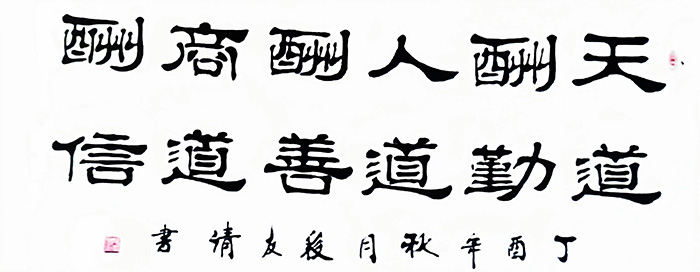 天道
酬勤
人道
酬善
商道
酬信
丁酉年秋月段友清書